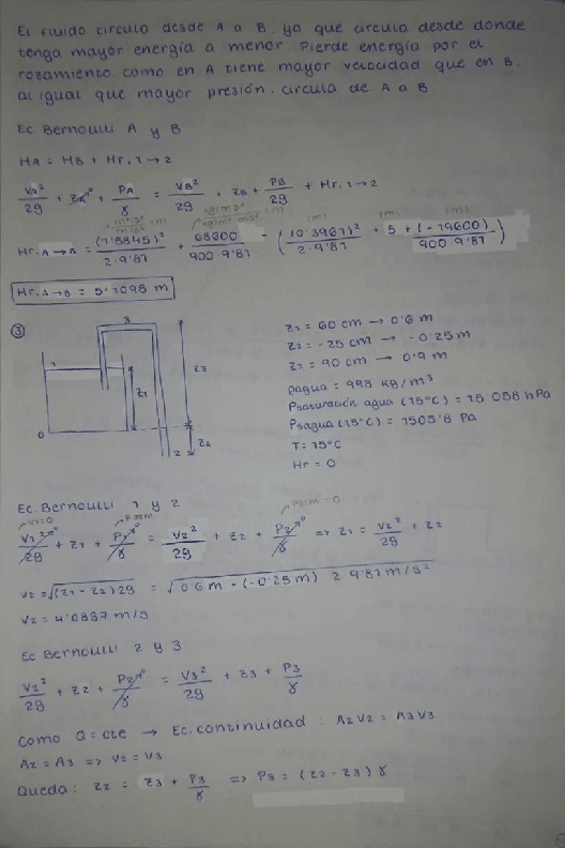 El fluido circula desde A a B, ya que circula desde donde
tenga mayor energía a menor. Pierde energía por el
rozamiento como en A tiene mayor velocidad que en B,
al igual que mayor presión, circula de A a B.
Ec. Bernoulli A y B
HA = HB + Hr, 1→2
VA²/2g + ZA + PA/γ = VB²/2g + ZB + PB/2g + Hr, 1→2
Hr, A→B = (1'5845)²/2·9'81 + 68600/900·9'81 - ((0'3961)²/2·9'81 + 5 + (-19600)/900·9'81)
Hr, A→B = 5'1098 m
③
3
1
Z1
Z3
0
2
Z2
Z1 = 60 cm → 0'6 m
Z2 = -25 cm → -0'25 m
Z2 = 90 cm → 0'9 m
ρagua = 998 kg/m³
Psaturación agua (15°C) = 15 058 hPa
Psagua (15°C) = 1505'8 Pa
T: 15°C
Hr = 0
Ec. Bernoulli 1 y 2
V1=0 Patm Patm = 0
V1²/2g + Z1 + P1/γ = V2²/2g + Z2 + P2/γ => Z1 = V2²/2g + Z2
V2 = √(Z1 - Z2)2g = √0'6 m - (-0'25 m) · 2 · 9'81 m/s²
V2 = 4'0837 m/s
Ec Bernoulli 2 y 3
V2²/2g + Z2 + P2/γ = V3²/2g + Z3 + P3/γ
Como Q = cte → Ec. continuidad : A2V2 = A3V3
A2 = A3 => V2 = V3
Queda : Z2 = Z3 + P3/γ => P3 = (Z2 - Z3) γ